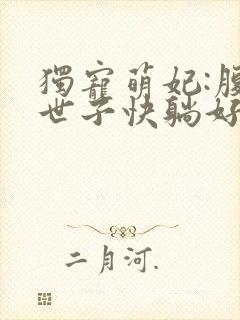 獨寵萌妃:
世子快躺好
二月河.